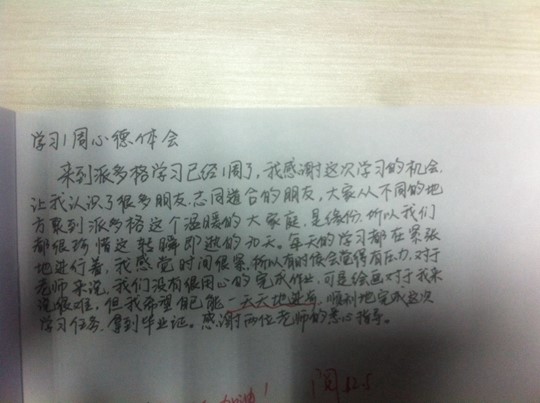 学习1周心德体会
来到派多格学习已经1周了,我感谢这次学习的机会,
让我认识了很多朋友,志同道合的朋友,大家从不同的地
方聚到派多格这个温暖的大家庭,是缘份,所以我们
都很珍惜这转瞬即逝的70天。每天的学习都在紧张
地进行着,我感觉时间很紧,所以有时候会觉得有压力,对于
老师来说,我们没有很用心的完成作业,可是绘画对于我来
说很难,但我希望自己能一天天地进步,顺利地完成这次
学习任务,拿到毕业证。感谢两位老师的悉心指导。
加油!
阅 12.5